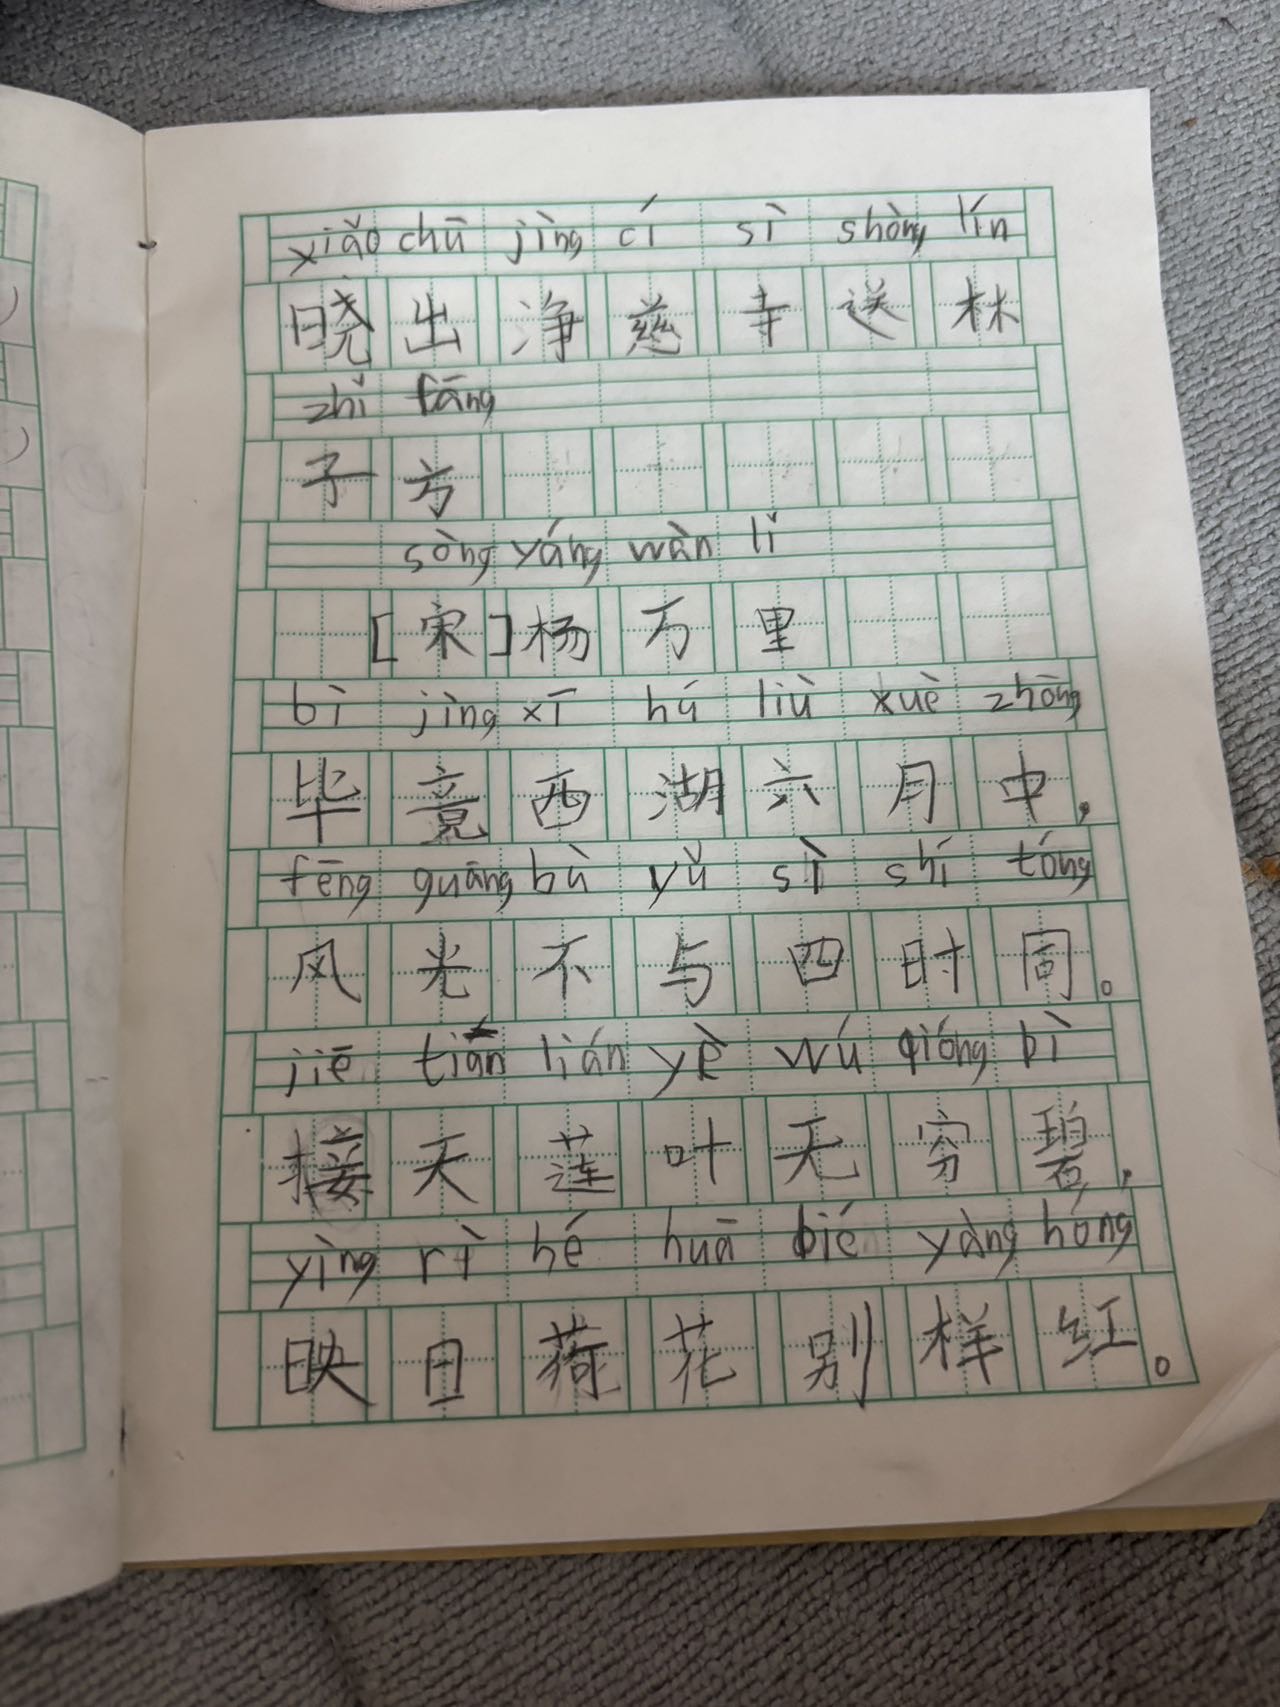 xiǎo chū jìng cí sì shòng lín
晓出净慈寺送林
zhǐ fāng
子方
sòng yáng wàn lǐ
[宋]杨万里
bì jìng xī hú liù xuè zhōng
毕竟西湖六月中,
fēng guāng bù yǔ sì shí tóng
风光不与四时同。
jiē tiān lián yè wú qióng bì
接天莲叶无穷碧,
yìng rì hé huā bié yàng hóng
映日荷花别样红。